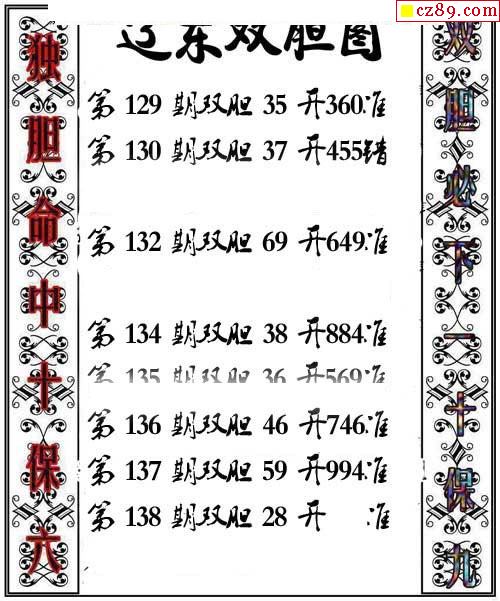 cz89.com
辽东双胆图
独胆命中十保六
第 129 期双胆 35 开360准
第 130 期双胆 37 开455错
第 132 期双胆 69 开649准
第 134 期双胆 38 开884准
第 135 期双胆 36 开569准
第 136 期双胆 46 开746准
第 137 期双胆 59 开994准
第 138 期双胆 28 开 准
双胆必下一十保九